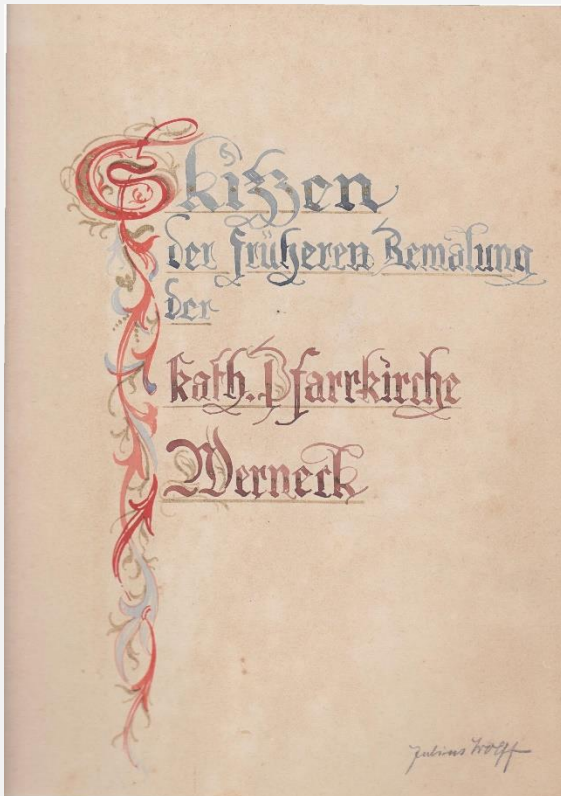 Skizzen
der früheren Bemalung
der
kath. Pfarrkirche
Werneck
Julius Wolff